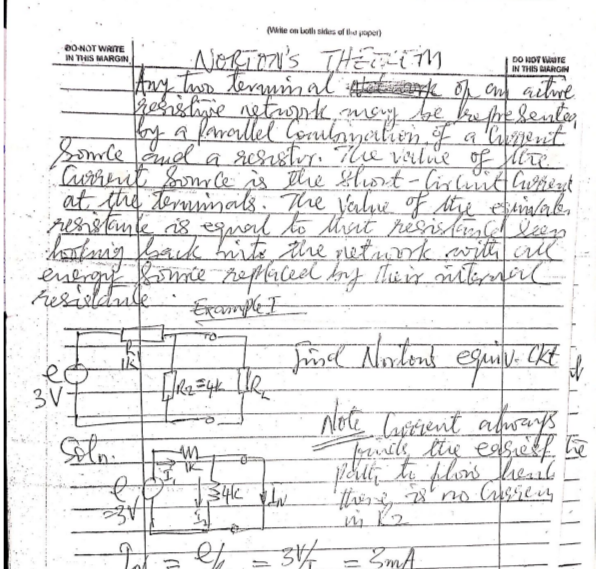 (Write on both sides of the paper)
DO NOT WRITE IN THIS MARGIN
DO NOT WRITE IN THIS MARGIN
NORTON'S THEOREM
Any two terminal of an active
resistive network may be represented
by a parallel Combination of a Current
Source and a resistor. The value of the
Current Source is the Short-Circuit Current
at the terminals. The value of the
resistance is equal to that resistance seen
looking back into the network with all
energy Source replaced by their internal
resistance.
Example I
R1
1k
e
3V
R2=4k
RL
Find Norton's equiv. Ckt
Note Current always
the easiest
path to flow
there is no Current
in R2
Soln.
1k
I1
e
=3V
I2
4k
IN
= 3V/1 = 3mA